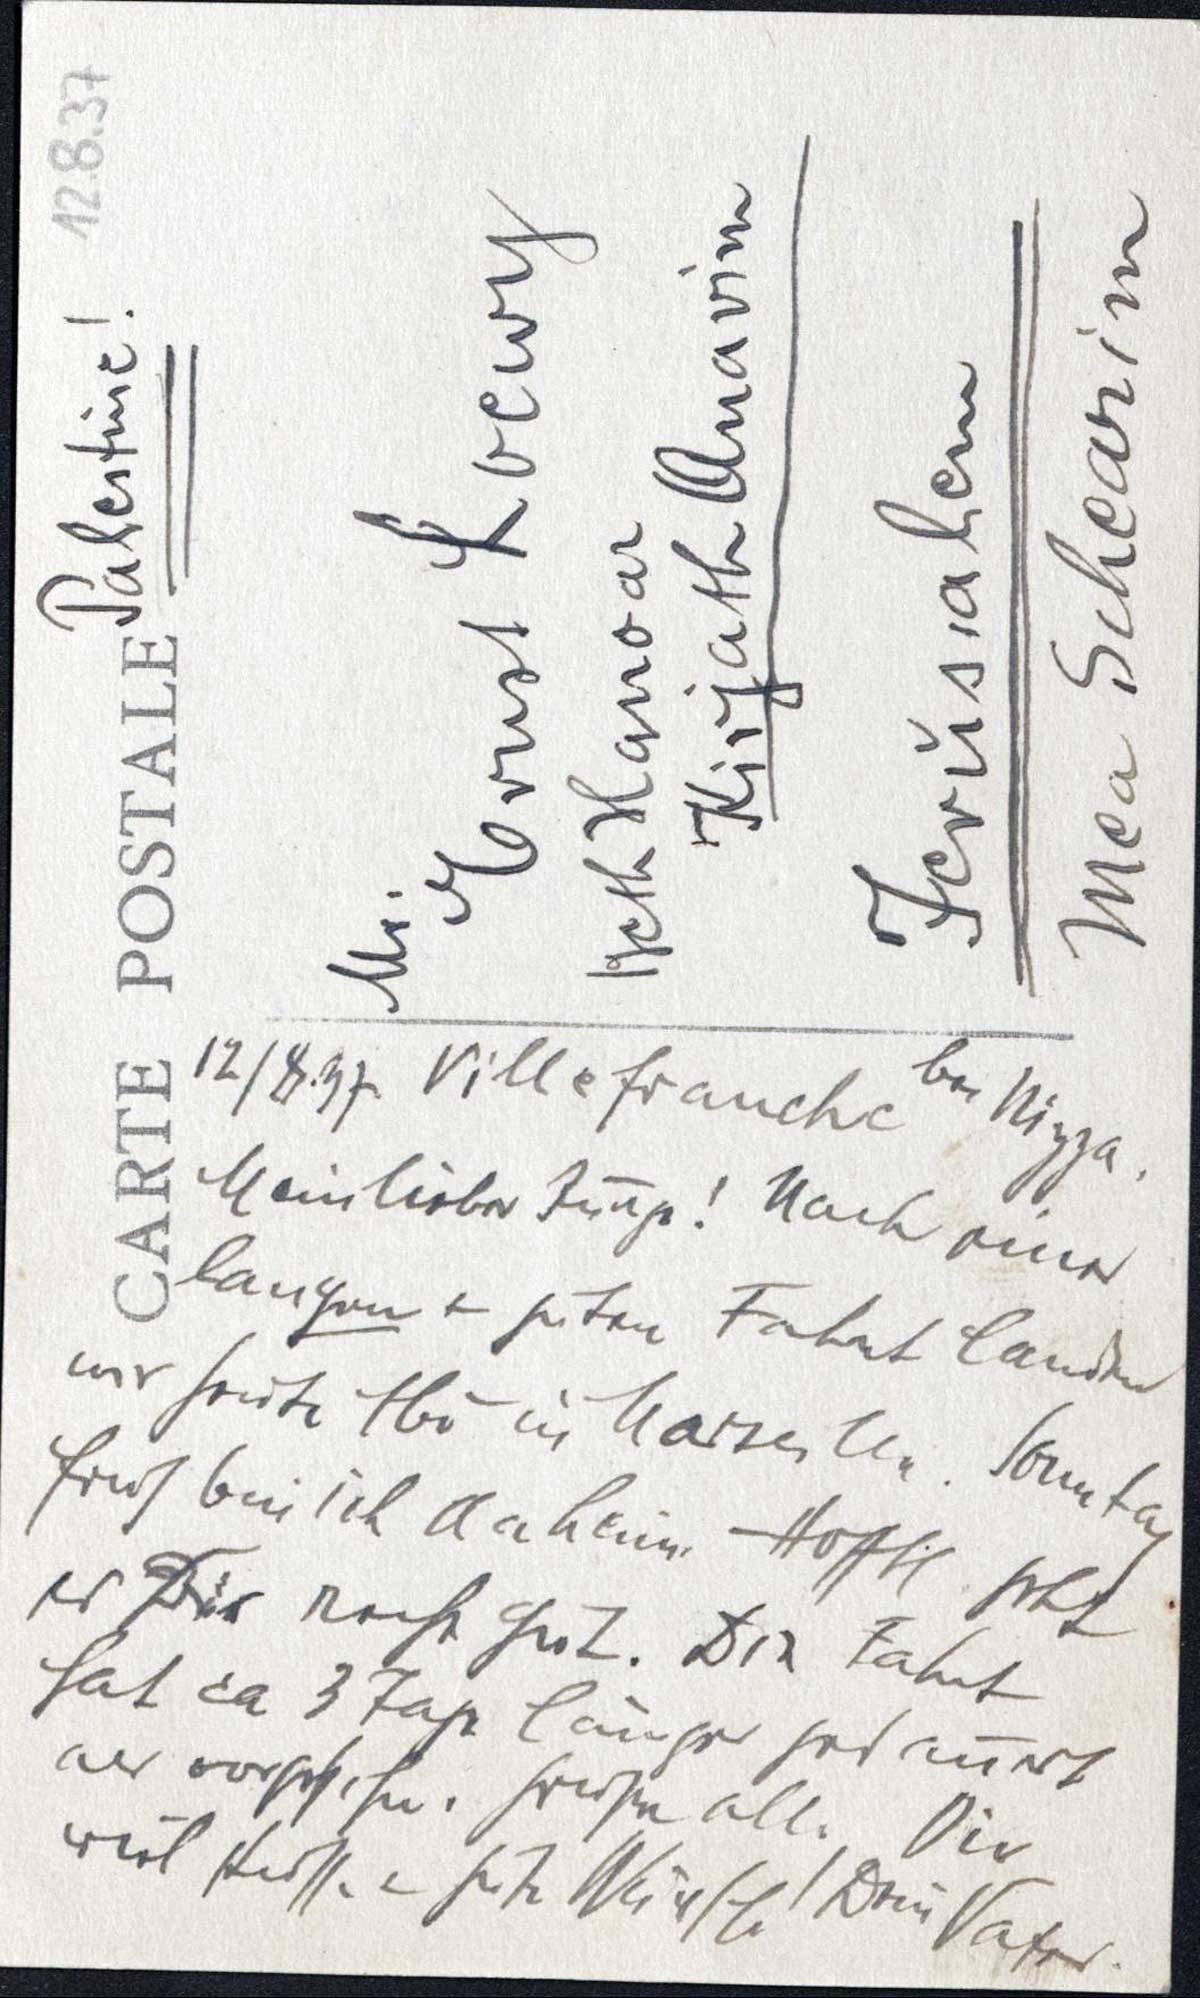 12.8.37
CARTE POSTALE
Palestine!
Mr.
Ernst Loewy
Beth Hanoar
Kirjath Anavim
Jerusalem
Mea Schearim
12/8.37. Villefranche bei Nizza.
Mein lieber Junge! Nach einer
langen + guten Fahrt landen
wir heute in Marseille. Sonntag
früh bin ich daheim. Hofftl. geht
es Dir recht gut. Die Fahrt
hat ca 3 Tage länger gedauert
als vorgesehen. Grüße alle. Dir
viel Küsse + gute Wünsche! Dein Vater.